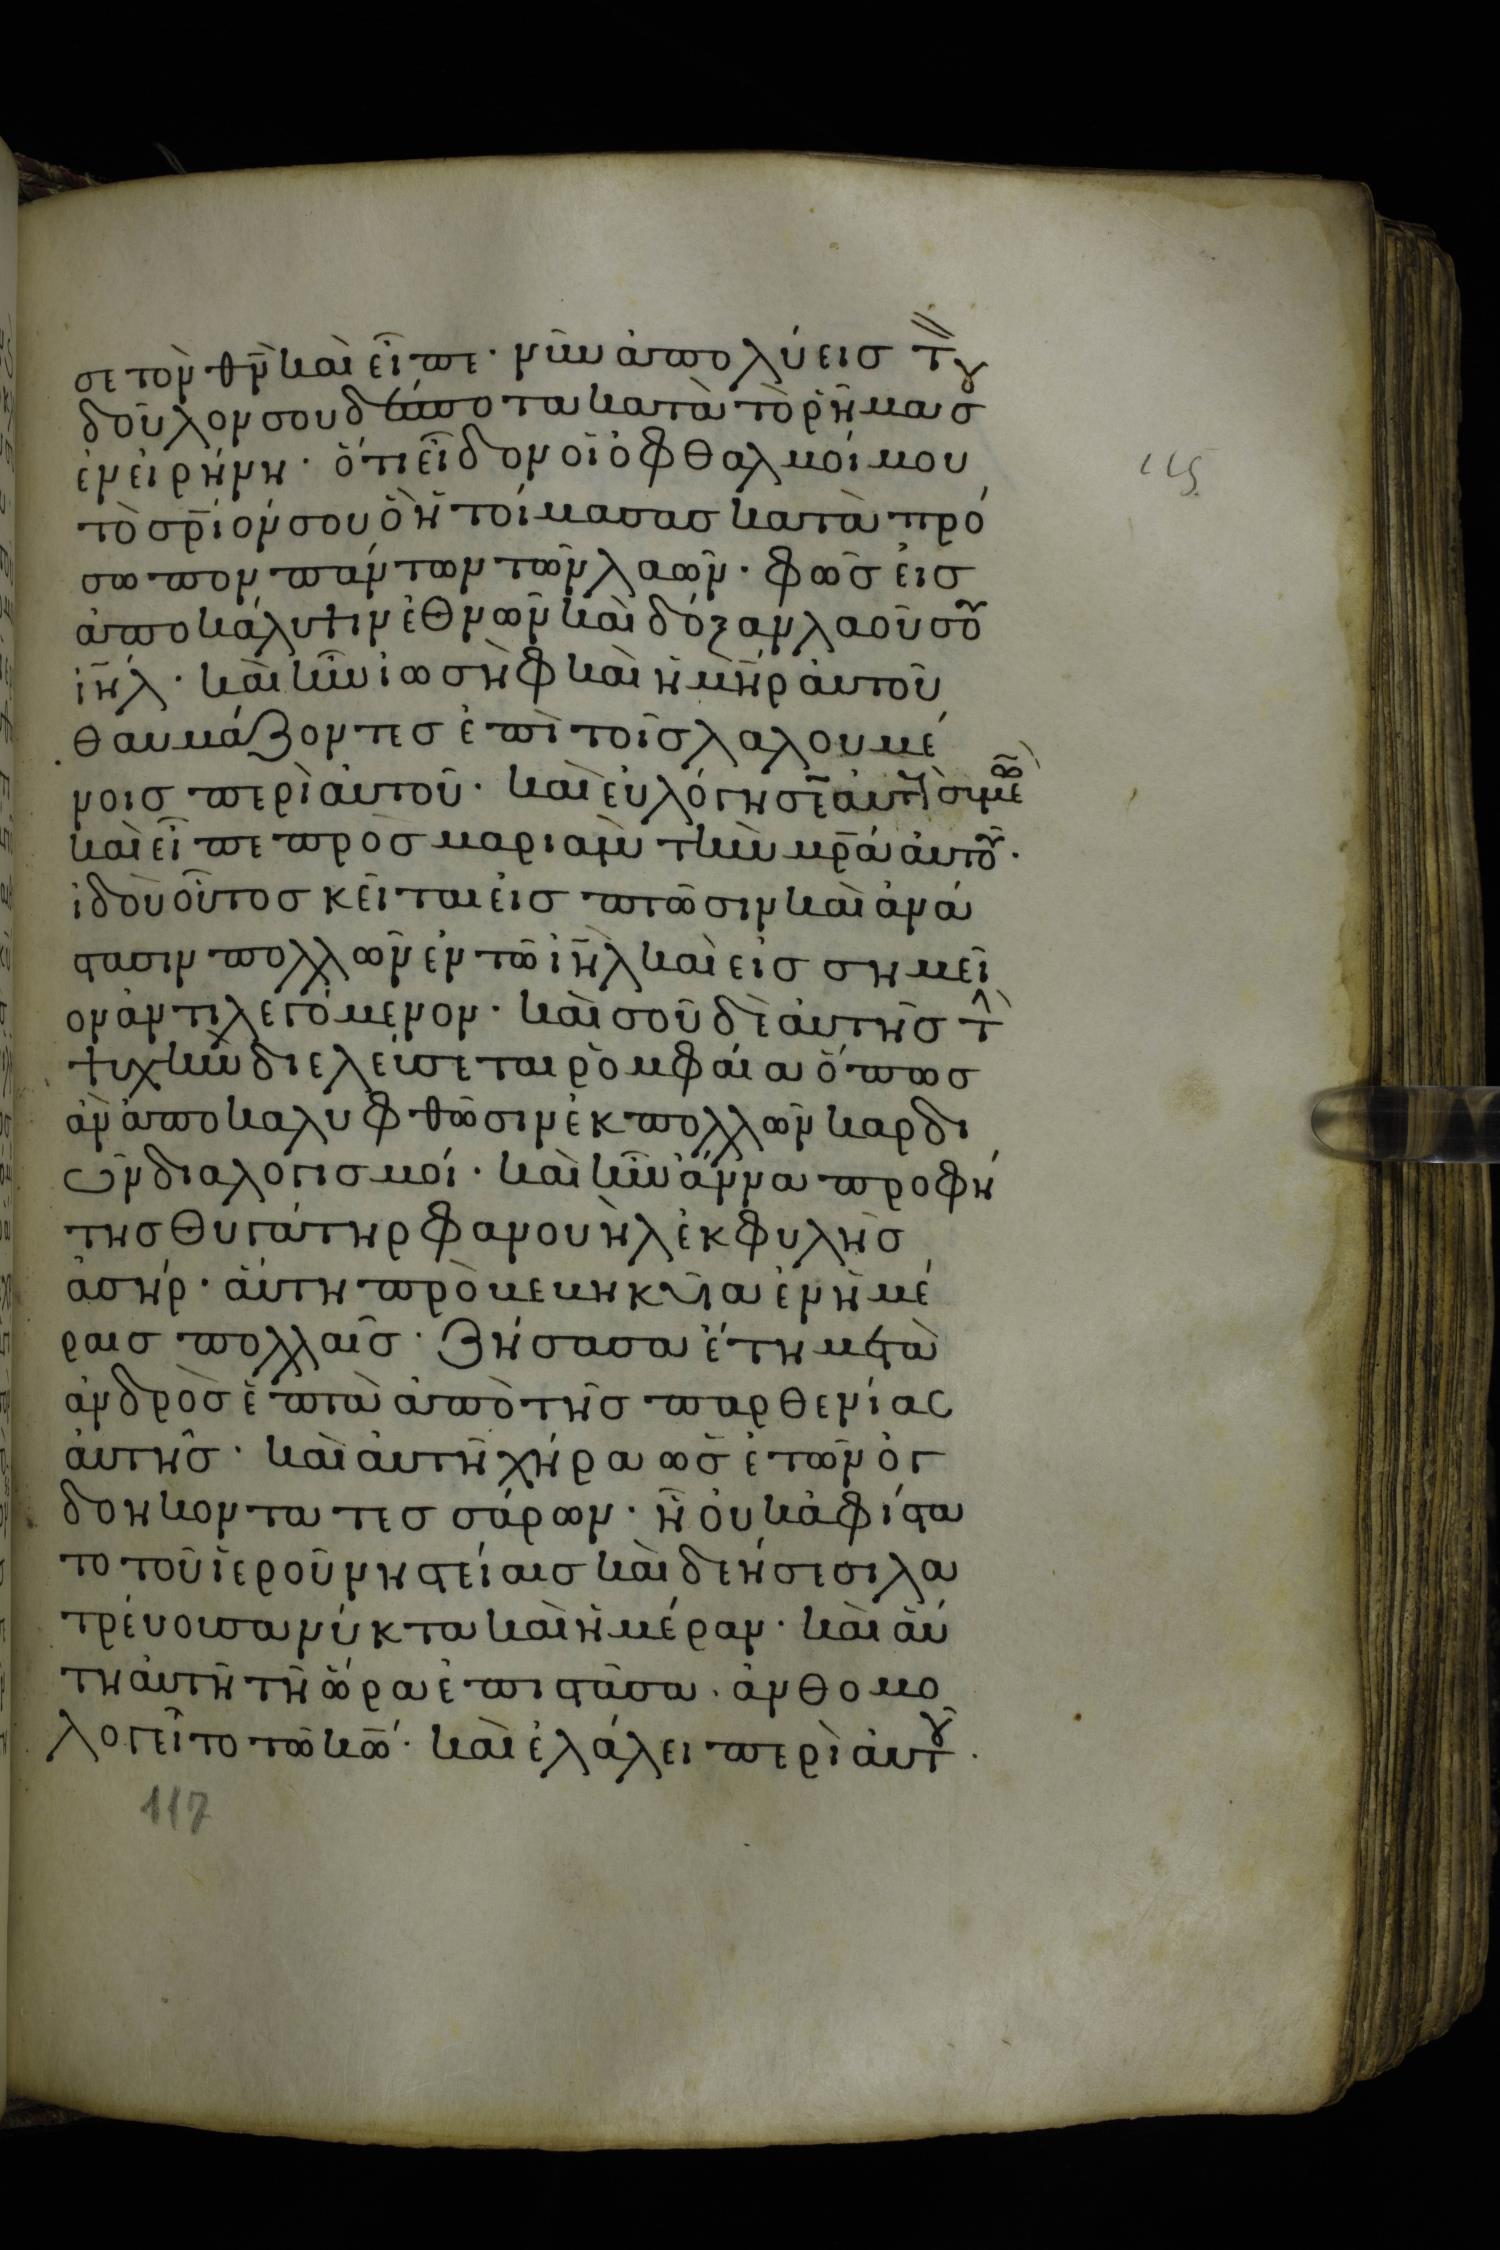 σε τὸν θν̅ καὶ εἶπε · νῦν ἀπολύεισ τὸν
δοῦλον σου δέσποτα κατὰ τὸ ρῆμα σου
ἐν εἰρήνη · ὅτι εἶδον οἱ ὀφθαλμοί μου
τὸ σρ̅ιόν σου ὃ ἡτοίμασασ κατὰ πρό
σωπον πάντων τῶν λαῶν · φῶσ εἰσ
ἀποκάλυψιν ἐθνῶν καὶ δόξαν λαοῦ σοῦ
ιη̅λ · καὶ ἦν ἰωσὴφ καὶ ἡ μη̅ρ ἀυτοῦ
θαυμάζοντεσ ἐπὶ τοῖσ λαλουμέ
νοισ περὶ ἀυτοῦ · καὶ ἐυλόγησεν ἀυτοὺσ συμε
καὶ εἶπε πρὸσ μαριὰμ τὴν μρ̅ά ἀυτοῦ ·
ἰδοὺ οὗτοσ κεῖται εἰσ πτῶσιν καὶ ἀνά
στασιν πολλῶν ἐν τῶ ιη̅λ καὶ εἰσ σημεῖ
ον ἀντιλεγόμενον · καὶ σοῦ δὲ ἀυτῆσ τὴν
ψυχὴν διελεύσεται ρομφάια ὅπωσ
ἂν ἀποκαλυφθῶσιν ἐκ πολλῶν καρδι
ῶν διαλογισμοί · καὶ ἦν ἄννα προφή
τησ θυγάτηρ φανουὴλ ἐκ φυλῆσ
ἀσήρ · ἅυτη προβεβηκυῖα ἐν ἡμέ
ραισ πολλαῖσ · ζήσασα ἔτη μετὰ
ἀνδρὸσ ἑπτὰ ἀπὸ τῆσ παρθενίασ
ἀυτῆσ · καὶ ἀυτὴ χήρα ὡσ ἐτῶν ὀγ
δοηκοντατεσσάρων · ἣ οὐκ ἀφίστα
το τοῦ ἱεροῦ νηστείαισ καὶ δεήσεσι λα
τρέυουσα νύκτα καὶ ἡμέραν · καὶ ἅυ
τη ἀυτῆ τῆ ὥρα ἐπιστᾶσα . ἀνθομο
λογεῖτο τῶ κω̅ · καὶ ἐλάλει περὶ ἀυτοῦ ·
115
117